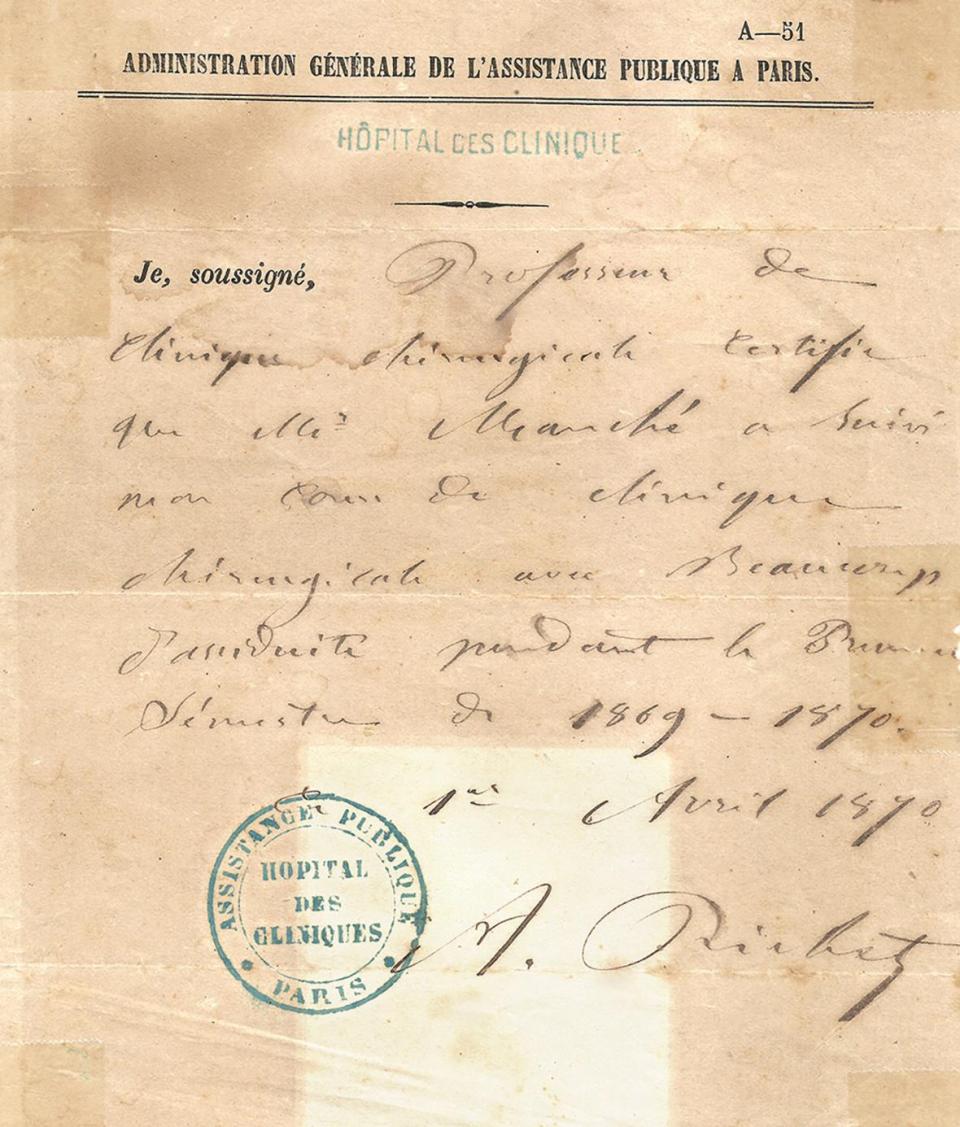 A—51
ADMINISTRATION GÉNÉRALE DE L'ASSISTANCE PUBLIQUE A PARIS.
HÔPITAL DES CLINIQUE
Je, soussigné, Professeur de
Clinique chirurgicale certifie
que Mr Manché a suivi
mon cours de clinique
chirurgicale avec Beaucoup
d'assiduité pendant le Premier
Sémestre de 1869 — 1870.
1er Avril 1870
ASSISTANCE PUBLIQUE
HOPITAL
DES
CLINIQUES
PARIS
A. Richet